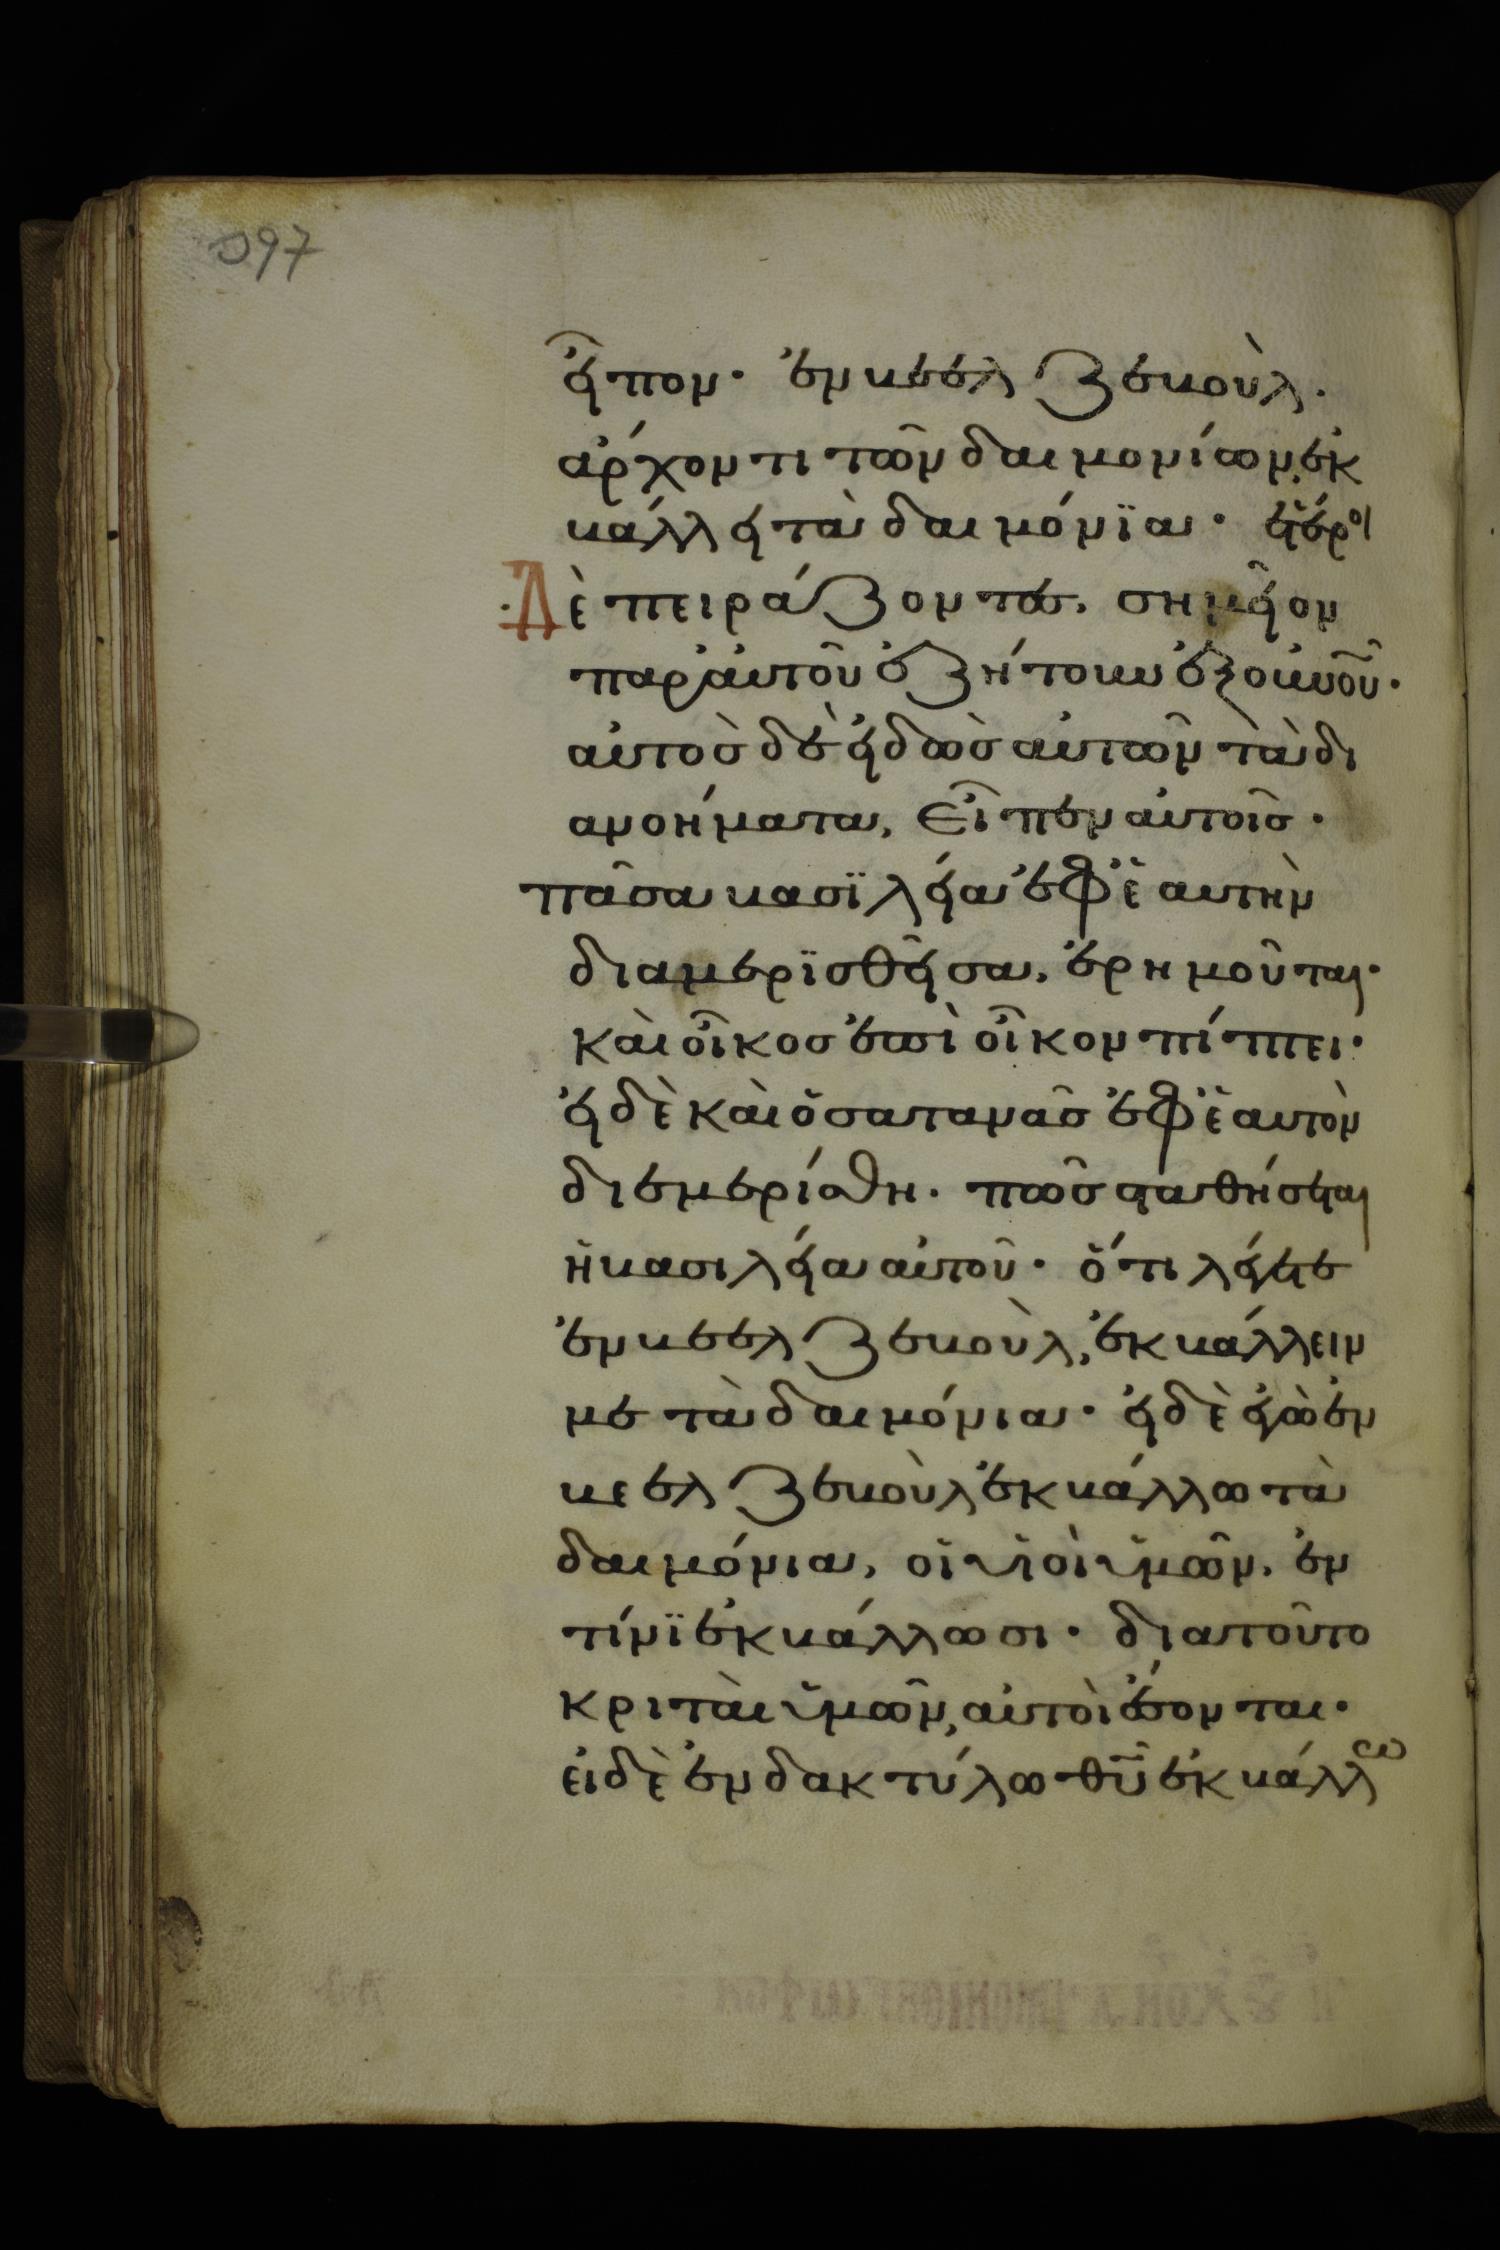 397
εἶπον· ἐν βεελζεβοὺλ.
ἄρχοντι τῶν δαιμονίων, ἐκ
βάλλει τὰ δαιμόνϊα· ἕτεροι
Δὲ πειράζοντες. σημεῖον
παρ' αὐτοῦ ἐζήτουν ἐξ οὐνοῦ·
αὐτὸσ δὲ εἰδὼσ αὐτῶν τὰ δι
ανοήματα, Εἶπεν αὐτοῖσ·
πᾶσα βασϊλεία ἐφ' ἑαυτὴν
διαμερϊσθεῖσα, ἐρημοῦται·
καὶ οἶκοσ ἐπὶ οἶκον πίπτει·
εἰ δὲ καὶ ὁ σατανᾶσ ἐφ' ἑαυτὸν
διεμερίσθη. πῶσ σταθήσεται
ἡ βασιλεία αὐτοῦ· ὅτι λέγετε
ἐν βεελζεβοὺλ, ἐκβάλλειν
με τὰ δαιμόνια· εἰ δὲ ἐγὼ ἐν
βεελζεβοὺλ ἐκβάλλω τὰ
δαιμόνια, οἱ υἱοὶ ὑμῶν, ἐν
τίνϊ ἐκβάλλωσι· διατοῦτο
κριταὶ ὑμῶν, αὐτοὶ ἔσονται·
εἰ δὲ ἐν δακτύλω θῦ ἐκβάλλω